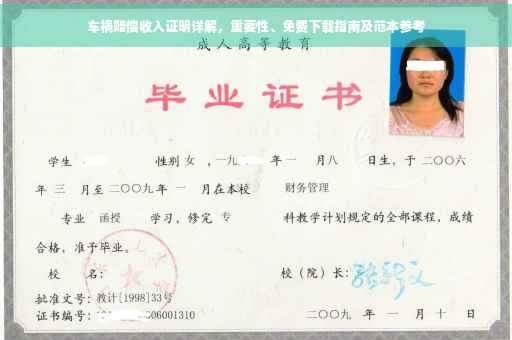 车祸赔偿收入证明详解，重要性、免费下载指南及范本参考
成人高等教育
毕业证书
学生 性别 女 ，一九 年 一 月八 日生，于 二〇〇六
年 三 月至 二〇〇九 年 一 月在本校 财务管理
专业 函授 学习，修完 专 科教学计划规定的全部课程，成绩
合格，准予毕业。
校 名： 校（院）长：
批准文号：教计[1998]33号
证书编号： 06001310 二〇〇九 年 一 月 十 日